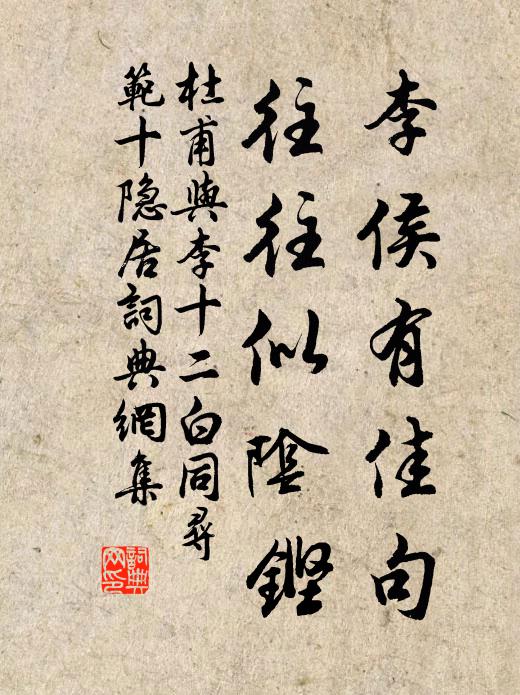 李侯有佳句
往往似陰鏗
杜甫與李十二白同尋
範十隐居詞典網集
詞典网印